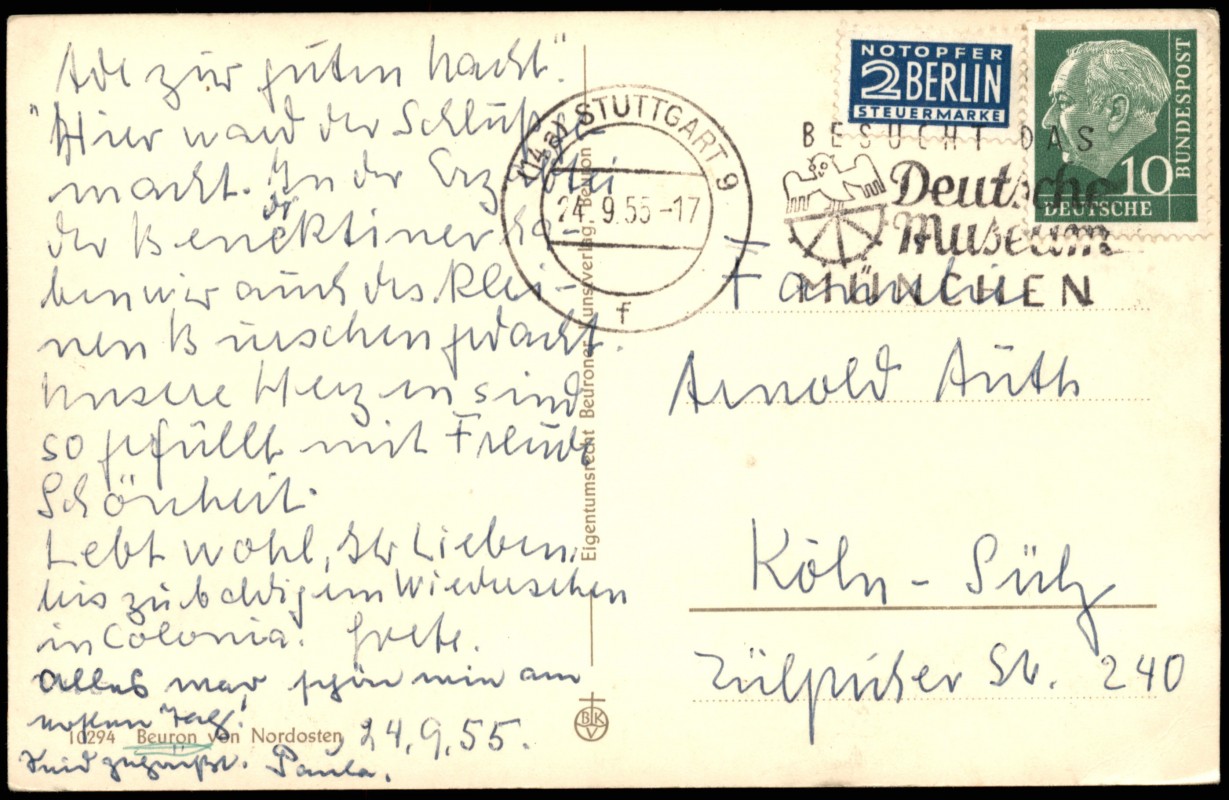 Ade zur guten Nacht".
"Hier ward der Schluß ge-
macht. In der Erzabtei
der Benediktiner ha-
ben wir auch des klei-
nen Burschen gedacht.
Unsere Herzen sind
so gefüllt mit Freude,
Schönheit.
Lebt wohl, Ihr Lieben,
bis zu baldigem Wiedersehen
in Colonia. Grete.
Alles war schön wie am
ersten Tag!
24.9.55.
Seid gegrüßt. Paula.
10294 Beuron von Nordosten
Eigentumsrecht Beuroner Kunstverlag Beuron
BKV
STUTTGART 9
24.9.55-17
f
NOTOPFER
2 BERLIN
STEUERMARKE
BUNDESPOST
10
DEUTSCHE
BESUCHT DAS
Deutsche
Museum
MÜNCHEN
Familie
Arnold Auth
Köln-Sülz
Zülpicher Str. 240